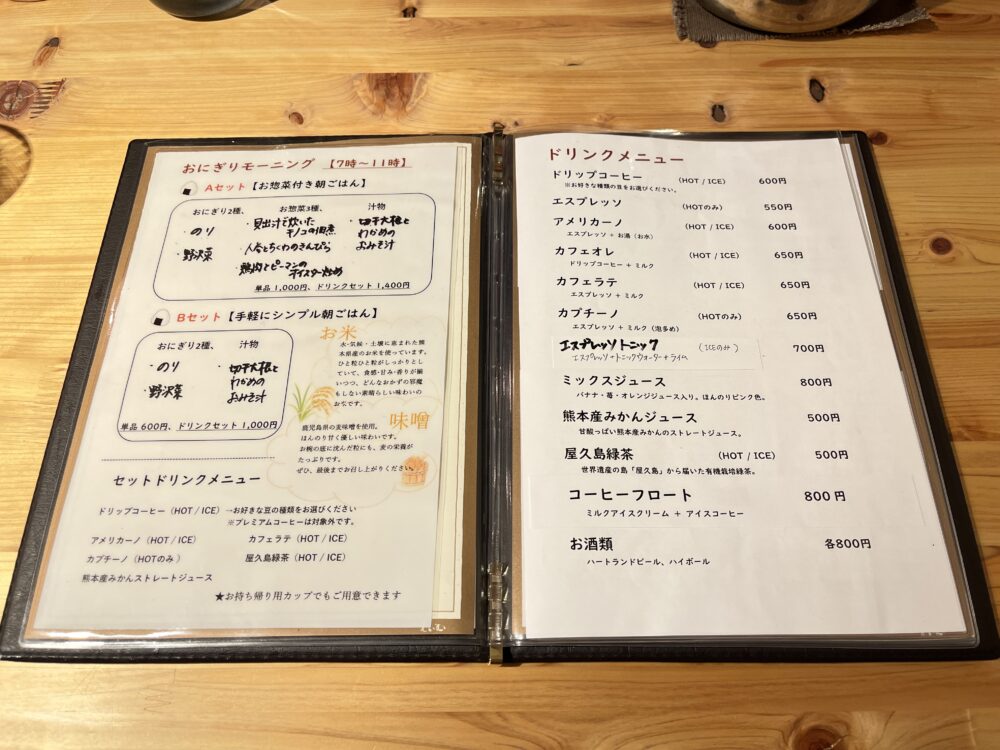 おにぎりモーニング 【7時～11時】
Aセット【お惣菜付き朝ごはん】
おにぎり2種、 お惣菜3種、 汁物
・のり
・野沢菜
・貝出汁で炊いた
キノコの佃煮
・人参とちくわのきんぴら
・鶏肉とピーマンの
オイスター炒め
・切干大根と
わかめの
おみそ汁
単品 1,000円、ドリンクセット 1,400円
Bセット【手軽にシンプル朝ごはん】
おにぎり2種、 汁物
・のり
・野沢菜
・切干大根と
わかめの
おみそ汁
単品 600円、ドリンクセット 1,000円
お米
水・気候・土壌に恵まれた熊
本県産のお米を使っています。
ひと粒ひと粒がしっかりとし
ていて、食感・甘み・香りが揃
いつつ、どんなおかずの邪魔
もしない素晴らしい味わいの
お米です。
味噌
鹿児島県の麦味噌を使用。
ほんのり甘く優しい味わいです。
お椀の底に沈んだ粒にも、麦の栄養が
たっぷりです。
ぜひ、最後までお召し上がりください。
セットドリンクメニュー
ドリップコーヒー（HOT / ICE）→お好きな豆の種類をお選びください
※プレミアムコーヒーは対象外です。
アメリカーノ（HOT / ICE） カフェラテ（HOT / ICE）
カプチーノ（HOTのみ） 屋久島緑茶（HOT / ICE）
熊本産みかんストレートジュース
★お持ち帰り用カップでもご用意できます
ドリンクメニュー
ドリップコーヒー （HOT / ICE） 600円
※お好きな種類の豆をお選びください。
エスプレッソ （HOTのみ） 550円
アメリカーノ （HOT / ICE） 600円
エスプレッソ + お湯（お水）
カフェオレ （HOT / ICE） 650円
ドリップコーヒー + ミルク
カフェラテ （HOT / ICE） 650円
エスプレッソ + ミルク
カプチーノ （HOTのみ） 650円
エスプレッソ + ミルク（泡多め）
エスプレッソトニック （ICEのみ） 700円
エスプレッソ+トニックウォーター+ライム
ミックスジュース 800円
バナナ・苺・オレンジジュース入り。ほんのりピンク色。
熊本産みかんジュース 500円
甘酸っぱい熊本産みかんのストレートジュース。
屋久島緑茶 （HOT / ICE） 500円
世界遺産の島「屋久島」から届いた有機栽培緑茶。
コーヒーフロート 800円
ミルクアイスクリーム + アイスコーヒー
お酒類 各800円
ハートランドビール、ハイボール